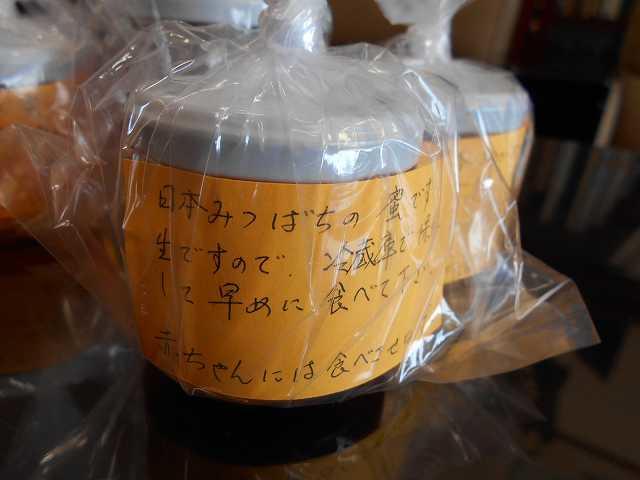 日本みつばちの 蜜です
生ですので、冷蔵庫で保
して早めに 食べて下さい
赤ちゃんには食べさせ